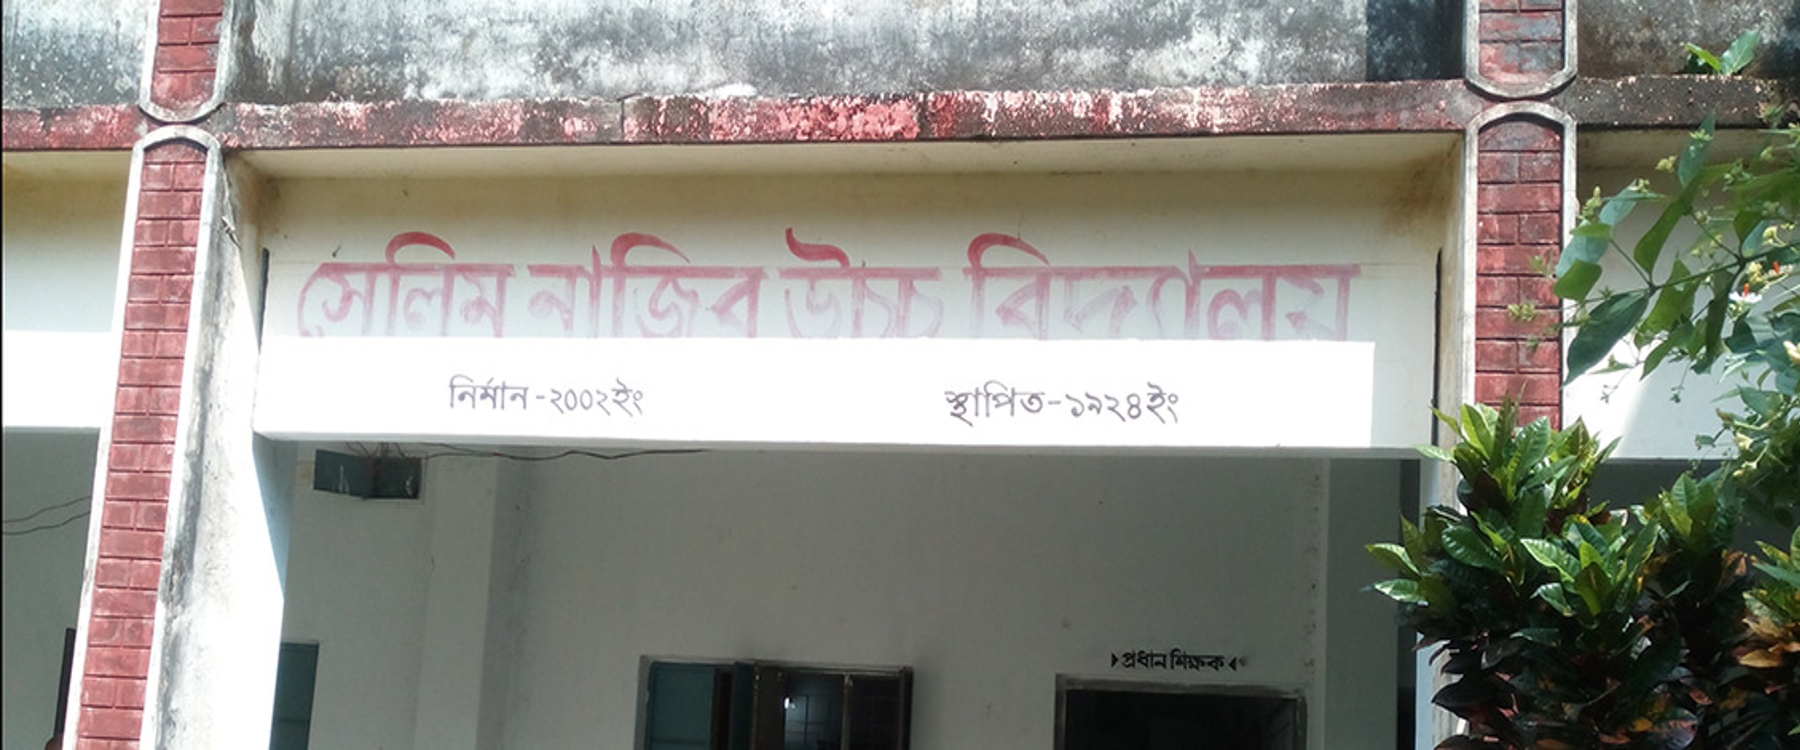 সেলিম নাজির উচ্চ বিদ্যালয়
নির্মান-২০০২ইং স্থাপিত-১৯২৪ইং
প্রধান শিক্ষক